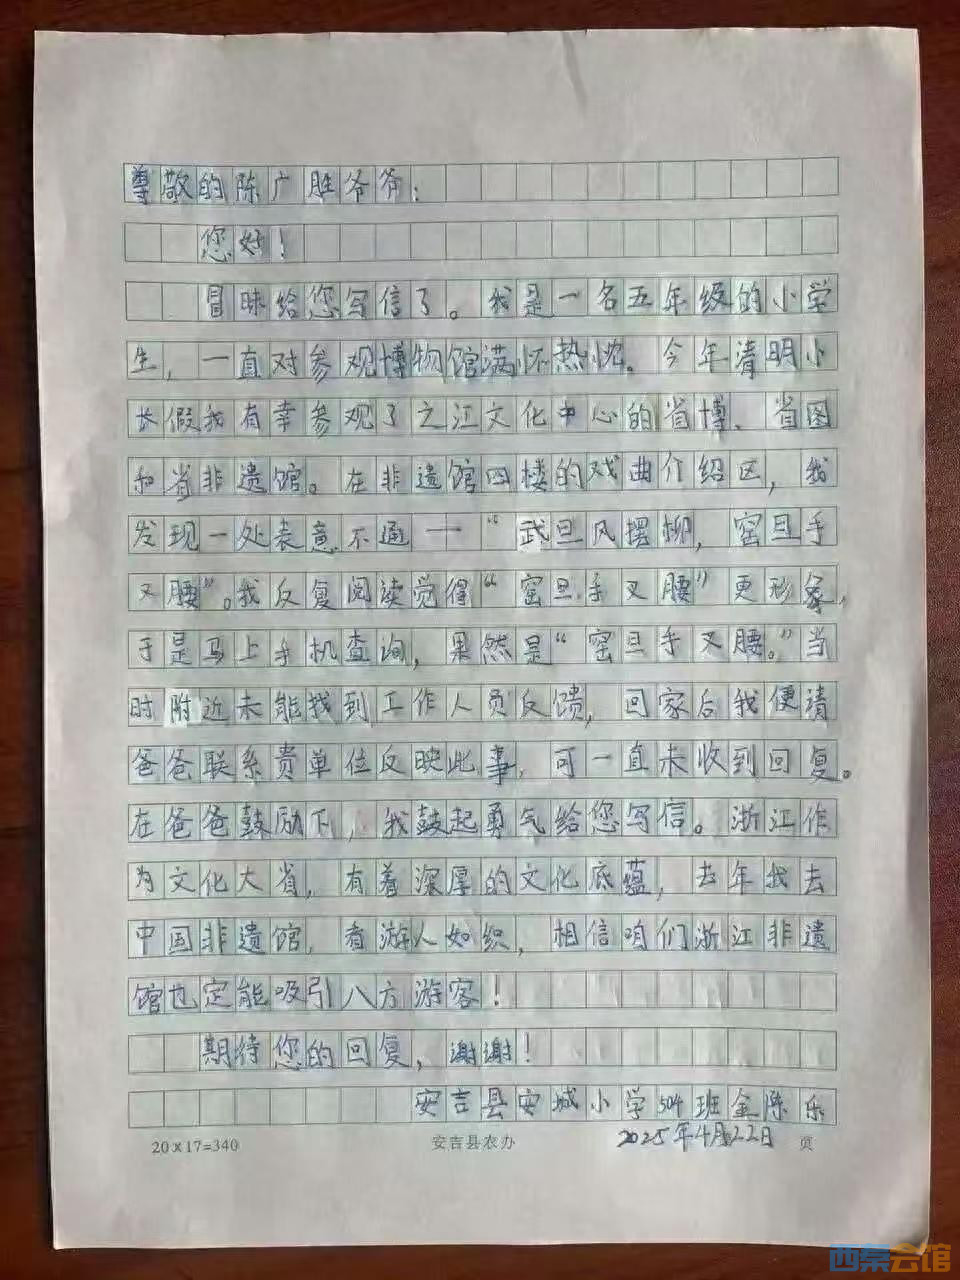 尊敬的陈广胜爷爷：
您好！
冒昧给您写信了。我是一名五年级的小学
生，一直对参观博物馆满怀热忱。今年清明小
长假我有幸参观了之江文化中心的省博、省图
和省非遗馆。在非遗馆四楼的戏曲介绍区，我
发现一处表意不通——“武旦风摆柳，窑旦手
叉腰”。我反复阅读觉得“窑旦手叉腰”更形象，
于是马上手机查询，果然是“窑旦手叉腰。”当
时附近未能找到工作人员反馈，回家后我便请
爸爸联系贵单位反映此事，可一直未收到回复。
在爸爸鼓励下，我鼓起勇气给您写信。浙江作
为文化大省，有着深厚的文化底蕴，去年我去
中国非遗馆，看游人如织，相信咱们浙江非遗
馆也定能吸引八方游客！
期待您的回复，谢谢！
安吉县安城小学504班金陈乐
20×17=340 安吉县农办 2025年4月22日 页
西秦会馆